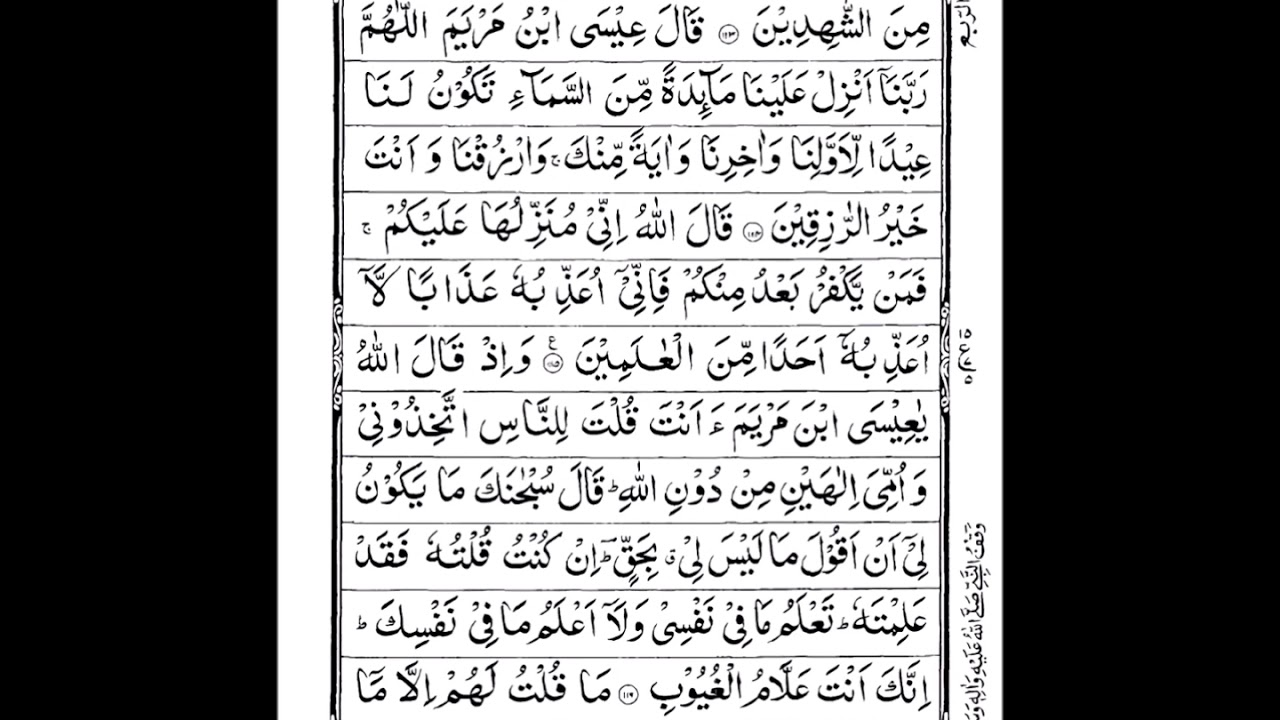 مِنَ الشّٰهِدِيْنَ ۝۱۱۳ قَالَ عِيْسَى ابْنُ مَرْيَمَ اللّٰهُمَّ
رَبَّنَاۤ اَنْزِلْ عَلَيْنَا مَآئِدَةً مِّنَ السَّمَآءِ تَكُوْنُ لَنَا
عِيْدًا لِّاَوَّلِنَا وَاٰخِرِنَا وَاٰيَةً مِّنْكَ ۚ وَارْزُقْنَا وَاَنْتَ
خَيْرُ الرّٰزِقِيْنَ ۝۱۱۴ قَالَ اللّٰهُ اِنِّيْ مُنَزِّلُهَا عَلَيْكُمْ ۚ
فَمَنْ يَّكْفُرْ بَعْدُ مِنْكُمْ فَاِنِّيْۤ اُعَذِّبُهٗ عَذَابًا لَّاۤ
اُعَذِّبُهٗۤ اَحَدًا مِّنَ الْعٰلَمِيْنَ ۝۱۱۵ ع وَاِذْ قَالَ اللّٰهُ
يٰعِيْسَى ابْنَ مَرْيَمَ ءَاَنْتَ قُلْتَ لِلنَّاسِ اتَّخِذُوْنِيْ
وَاُمِّيَ اِلٰهَيْنِ مِنْ دُوْنِ اللّٰهِ ؕ قَالَ سُبْحٰنَكَ مَا يَكُوْنُ
لِيْۤ اَنْ اَقُوْلَ مَا لَيْسَ لِيْ ۗ بِحَقٍّ ؕ اِنْ كُنْتُ قُلْتُهٗ فَقَدْ
عَلِمْتَهٗ ؕ تَعْلَمُ مَا فِيْ نَفْسِيْ وَلَاۤ اَعْلَمُ مَا فِيْ نَفْسِكَ ؕ
اِنَّكَ اَنْتَ عَلَّامُ الْغُيُوْبِ ۝۱۱۶ مَا قُلْتُ لَهُمْ اِلَّا مَاۤ
الربع
وقف النبي صلى الله عليه واله